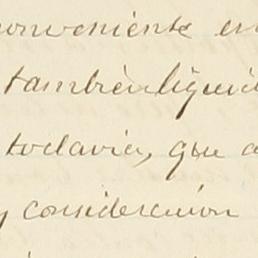 conveniente en
también
todavia, que a
y consideracion